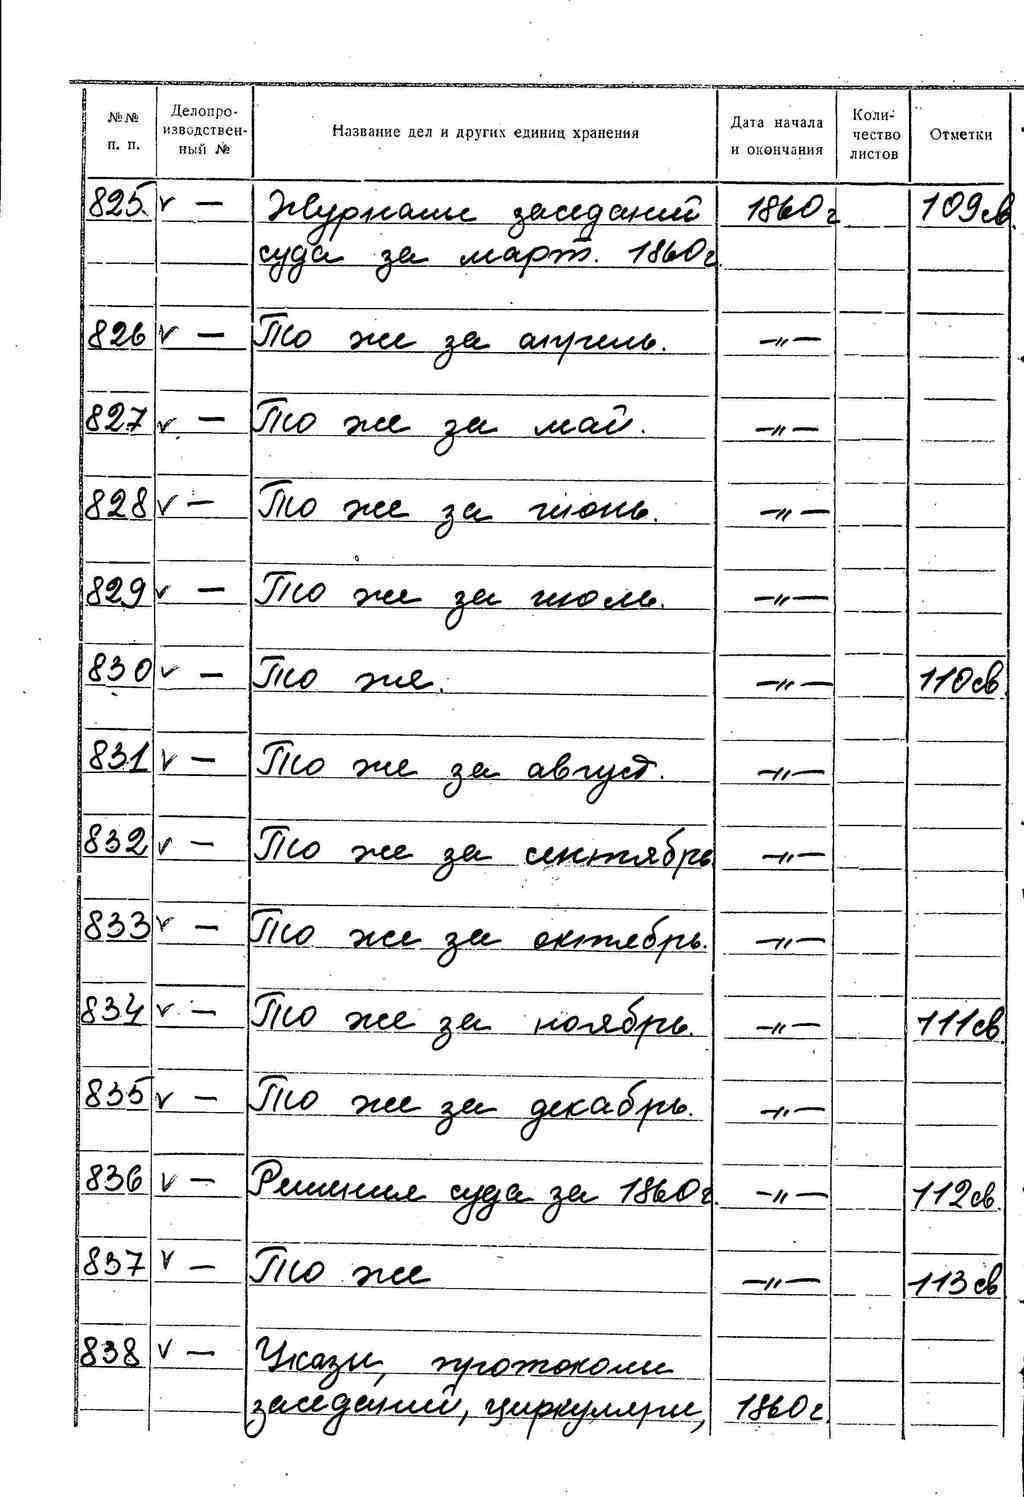 №№ п. п. Делопро-изводствен-ный № Название дел и других единиц хранения Дата начала и окончания Коли-чество листов Отметки
825. v — Журналы заседаний 1860г 109св.
суда за март. 1860г.
826 v — То же за апрель. —"—
827 v — То же за май. —"—
828 v — То же за июнь. —"—
829 v — То же за июль. —"—
830 v — То же. —"— 110св.
831 v — То же за август. —"—
832 v — То же за сентябрь —"—
833 v — То же за октябрь. —"—
834 v — То же за ноябрь. —"— 111св.
835 v — То же за декабрь. —"—
836 v — Решения суда за 1860г. —"— 112св.
837 v — То же —"— 113св
838 v — Указы, протоколы
заседаний, циркуляры, 1860г.